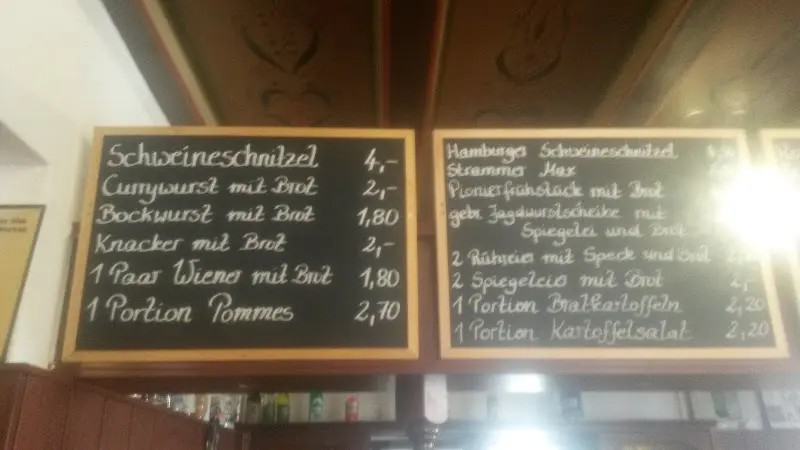 Schweineschnitzel 4,-
Currywurst mit Brot 2,-
Bockwurst mit Brot 1,80
Knacker mit Brot 2,-
1 Paar Wiener mit Brot 1,80
1 Portion Pommes 2,70
Hamburger Schweineschnitzel
Strammer Max
Pionierfrühstück mit Brot
gebr. Jagdwurstscheibe mit
Spiegelei und Brot
2 Rühreier mit Speck und Brot
2 Spiegeleier mit Brot 2,-
1 Portion Bratkartoffeln 2,20
1 Portion Kartoffelsalat 2,20